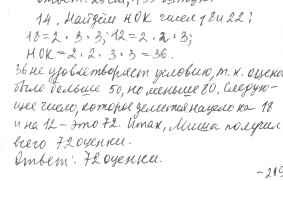 14. Найдём НОК чисел 18 и 22:
18=2·3·3; 12=2·2·3;
НОК=2·2·3·3=36.
36 не удовлетворяет условию, т. к. оценок
было больше 50, но меньше 80. Следую-
щее число, которое делится нацело на 18
и на 12 – это 72. Итак, Миша получил
всего 72 оценки.
Ответ: 72 оценки.